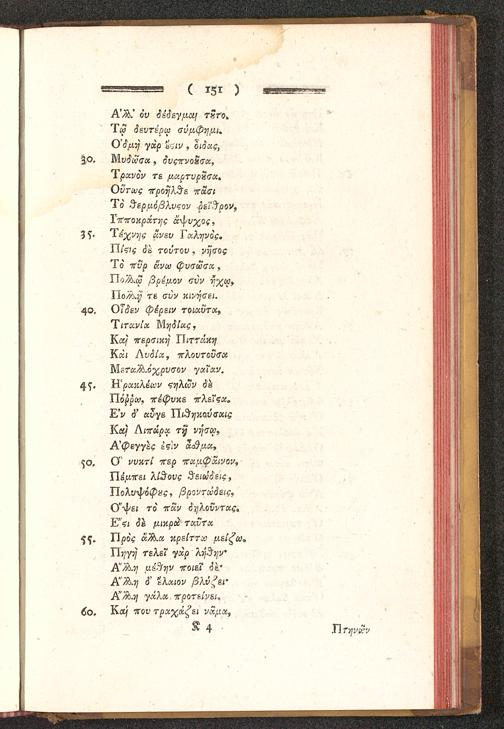 ( 151 )
Ἀλλ' οὐ δέδεγμαι τοῦτο.
Τῷ δευτέρῳ σύμφημι.
Ὀδμὴ γὰρ
30. Μυδῶσα, δυσπνοῦσα,
Τρανόν τε μαρτυροῦσα.
Οὕτως προῆλθε πᾶσι
Τὸ θερμόβλυστον ῥεῖθρον,
Ἱπποκράτης ἄψυχος,
35. Τέχνης ἄνευ Γαληνός.
Πίστις δὲ τούτου, νῆσος
Τὸ πῦρ ἄνω φυσῶσα,
Πολλῷ βρέμον σὺν ἤχῳ,
Πολλῇ τε σὺν κινήσει.
40. Οἶδεν φέρειν τοιαῦτα,
Τιτανία Μηδίας,
Καὶ περσικὴ Πιττάκη
Καὶ Λυδία, πλουτοῦσα
Μεταλλόχρυσον γαῖαν.
45. Ἡρακλέων στηλῶν δὲ
Πόῤῥω, πέφυκε πλεῖστα.
Ἐν δ' αὖγε Πιθηκούσαις
Καὶ Λιπάρᾳ τῇ νήσῳ,
Ἀφεγγὲς ἐστὶν ἆσθμα,
50. Ὃ νυκτί περ παμφαῖνον,
Πέμπει λίθους θειώδεις,
Πολυψόφους, βροντώδεις,
Ὄψει τὸ πᾶν δηλοῦντας.
Ἔστι δὲ μικρὰ ταῦτα
55. Πρὸς ἄλλα κρείττω μείζω.
Πηγὴ τελεῖ γὰρ λήθην·
Ἄλλη μέθην ποιεῖ δὲ·
Ἄλλη δ' ἔλαιον βλύζει·
Ἄλλη γάλα προτείνει.
60. Καὶ που τραχάζει νᾶμα,
K 4 Πτηνῶν